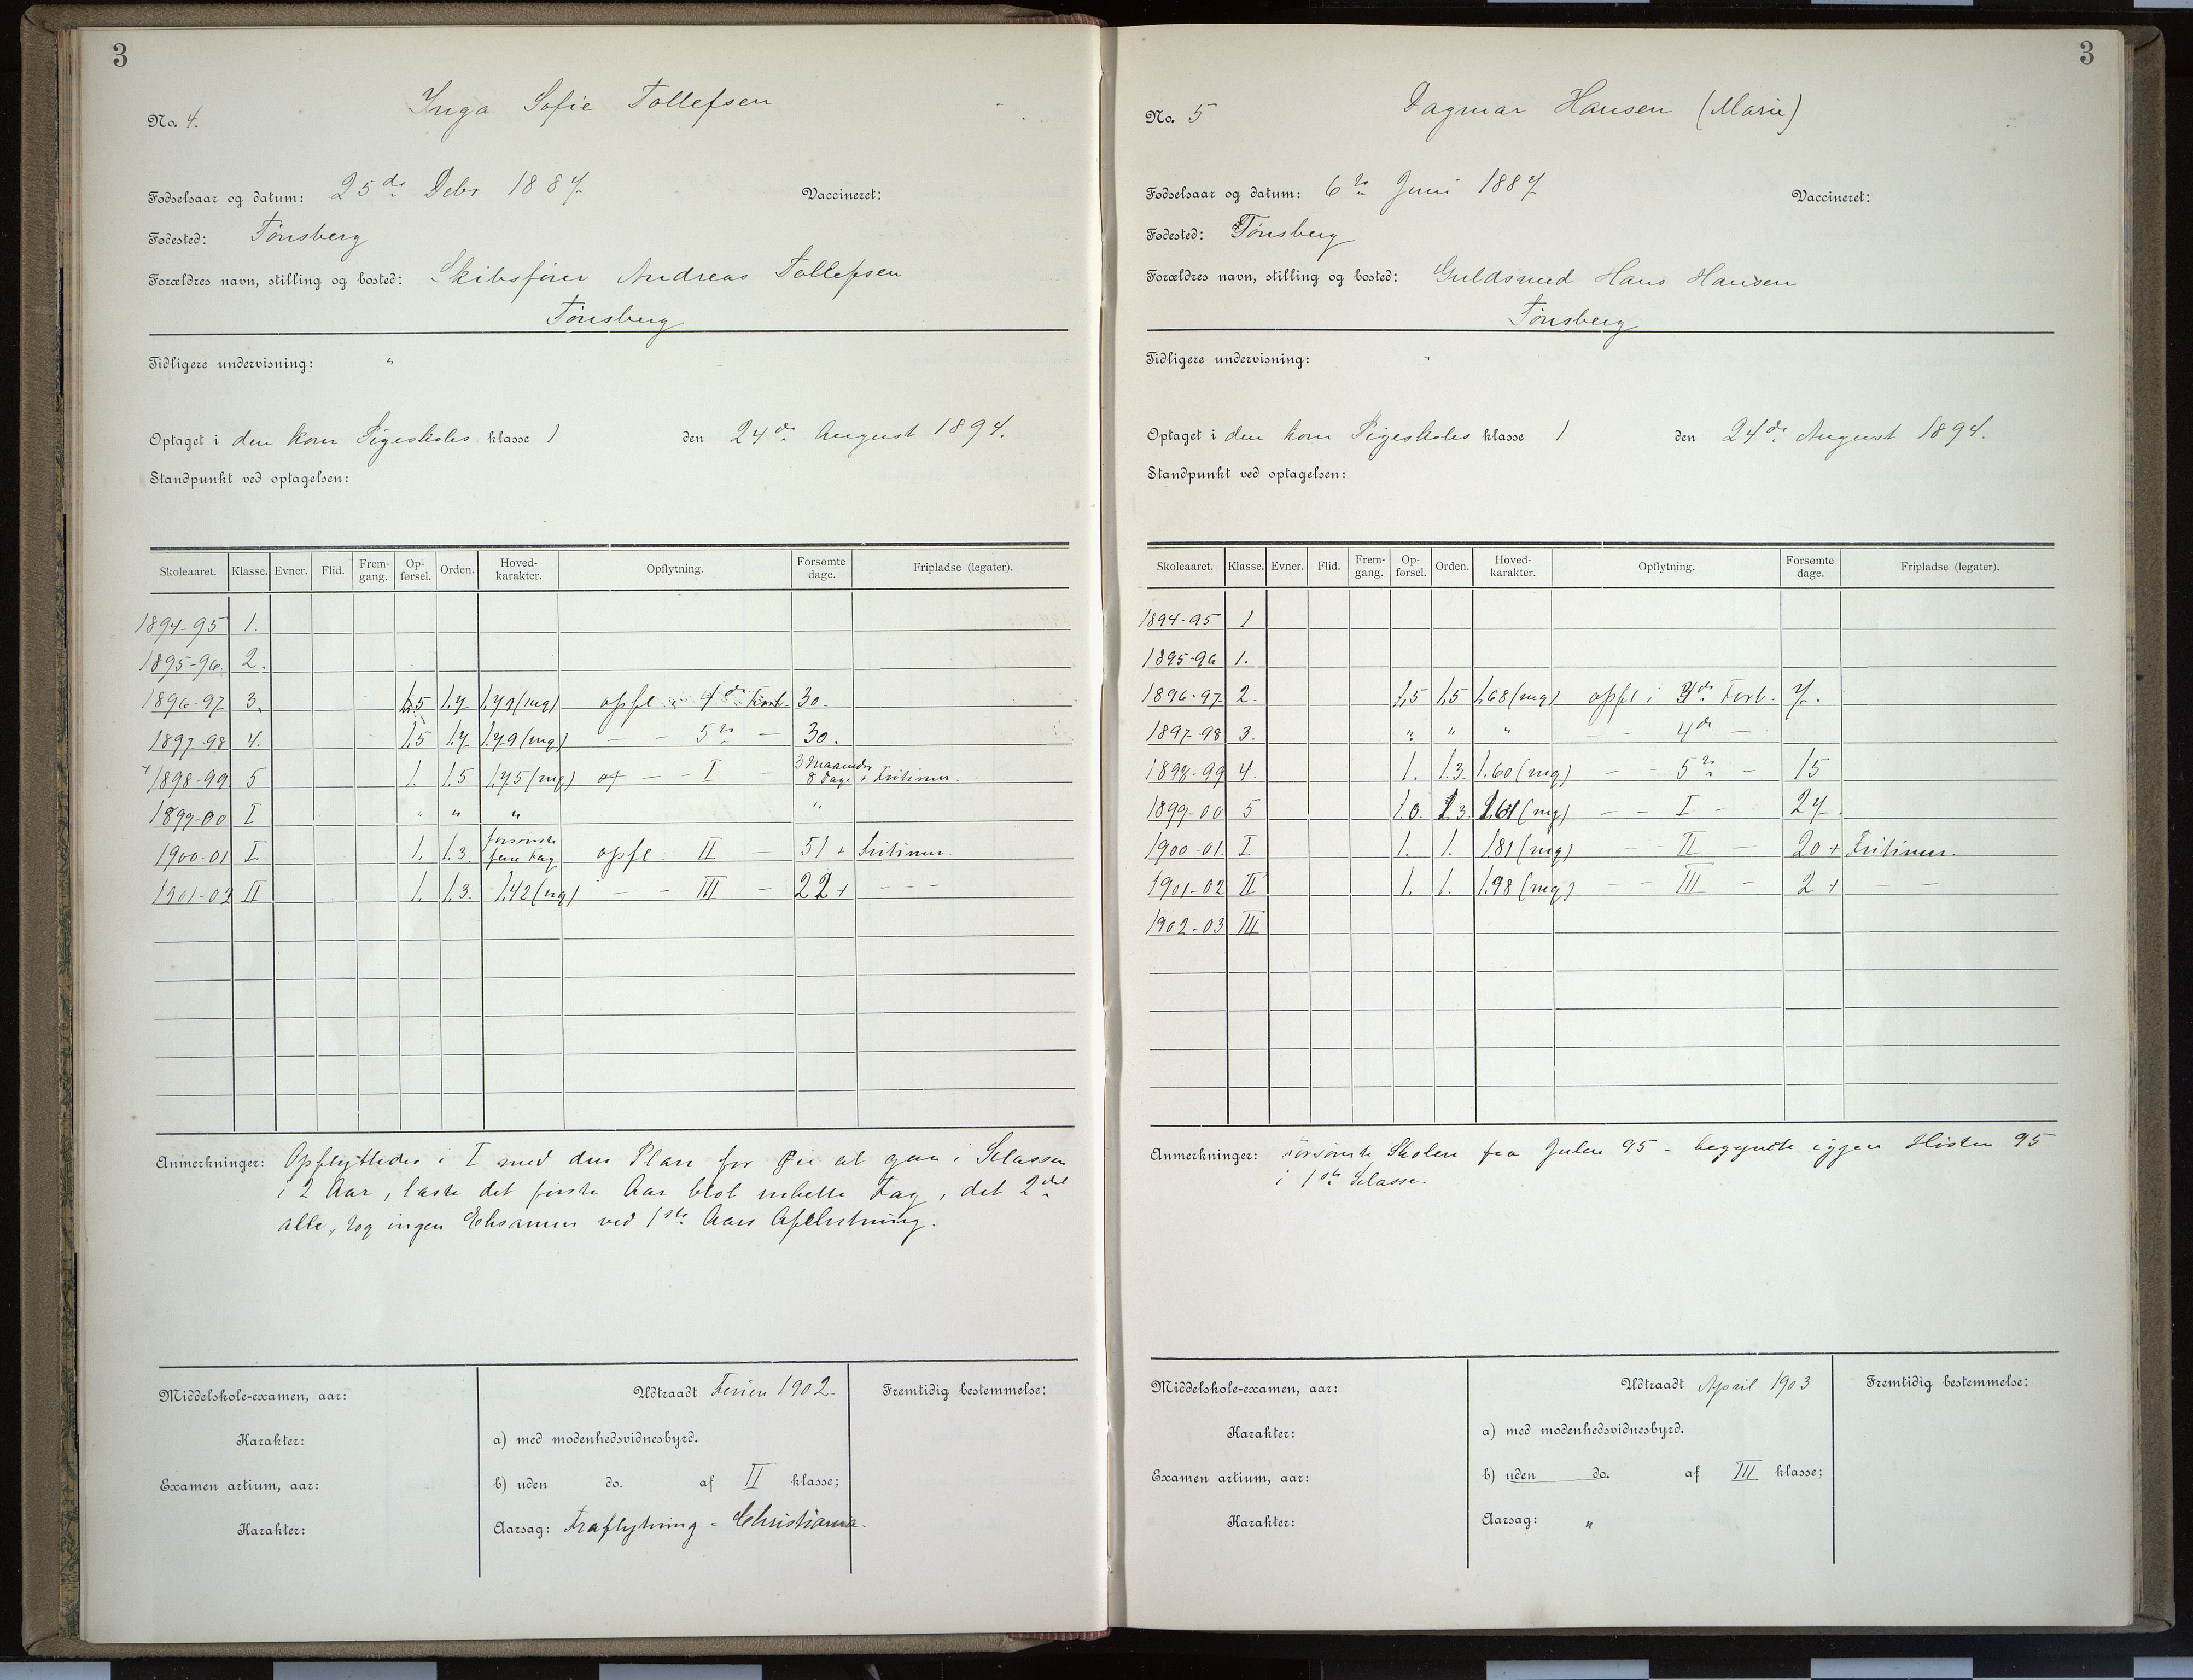 3
No. 4. Inga Sofie Tollefsen
Fødselsaar og datum: 25de Debr 1887 Vaccineret:
Fødested: Tønsberg
Forældres navn, stilling og bosted: Skibsfører Andreas Tollefsen
Tønsberg
Tidligere undervisning: "
Optaget i den kom Pigeskoles klasse 1 den 24de August 1894.
Standpunkt ved optagelsen:
Skoleaaret. Klasse. Evner. Flid. Frem-gang. Op-førsel. Orden. Hoved-karakter. Opflytning. Forsømte dage. Fripladse (legater).
1894-95 1.
1895-96. 2.
1896-97 3. 1,5 1,7 1,79 (mg) opfl i 4de Forb. 30.
1897-98 4. 1,5 1,7 1,79 (mg) — — 5te — 30.
1898-99 5 1. 1.5 1,75 (mg) — — I — 3 Maaneder 8 Dage + Fritimer.
1899-00 I " " " "
1900-01 I 1. 1.3. forsømte flere Fag opfl. II — 51 + Fritimer.
1901-02 II 1. 1.3. 1.42 (mg) — — III — 22 + - - -
Anmerkninger: Opflyttedes i I med den Plan for Øie at gaa i Klassen
i 2 Aar, læste det første Aar blot enkelte Fag, det 2det
alle, tog ingen Eksamen ved 1ste Aars Afslutning.
Middelskole-examen, aar:
Karakter:
Examen artium, aar:
Karakter:
Udtraadt Ferien 1902.
a) med modenhedsvidnesbyrd.
b) uden do. af II klasse;
Aarsag: Fraflytning - Christiania.
Fremtidig bestemmelse:
3
No. 5 Dagmar Hansen (Marie)
Fødselsaar og datum: 6te Juni 1887 Vaccineret:
Fødested: Tønsberg
Forældres navn, stilling og bosted: Guldsmed Hans Hansen
Tønsberg
Tidligere undervisning: "
Optaget i den kom Pigeskoles klasse 1 den 24de August 1894.
Standpunkt ved optagelsen:
Skoleaaret. Klasse. Evner. Flid. Frem-gang. Op-førsel. Orden. Hoved-karakter. Opflytning. Forsømte dage. Fripladse (legater).
1894-95 1
1895-96 1.
1896-97 2. 1,5 1,5 1,68 (mg) opfl i 3de Forb. 7.
1897-98 3. " " " — — 4de —
1898-99 4. 1. 1.3. 1.60 (mg) — — 5te — 15
1899-00 5 1.0. 1.3. 1.61 (mg) — — I — 27.
1900-01. I 1. 1. 1.81 (mg) — — II — 20 + Fritimer.
1901-02 II 1. 1. 1.98 (mg) — — III — 2 + — —
1902-03 III
Anmerkninger: forsømte Skolen fra Julen 95 - begyndte igjen Høsten 95
i 1ste Klasse.
Middelskole-examen, aar:
Karakter:
Examen artium, aar:
Karakter:
Udtraadt April 1903
a) med modenhedsvidnesbyrd.
b) uden do. af III klasse;
Aarsag: "
Fremtidig bestemmelse: